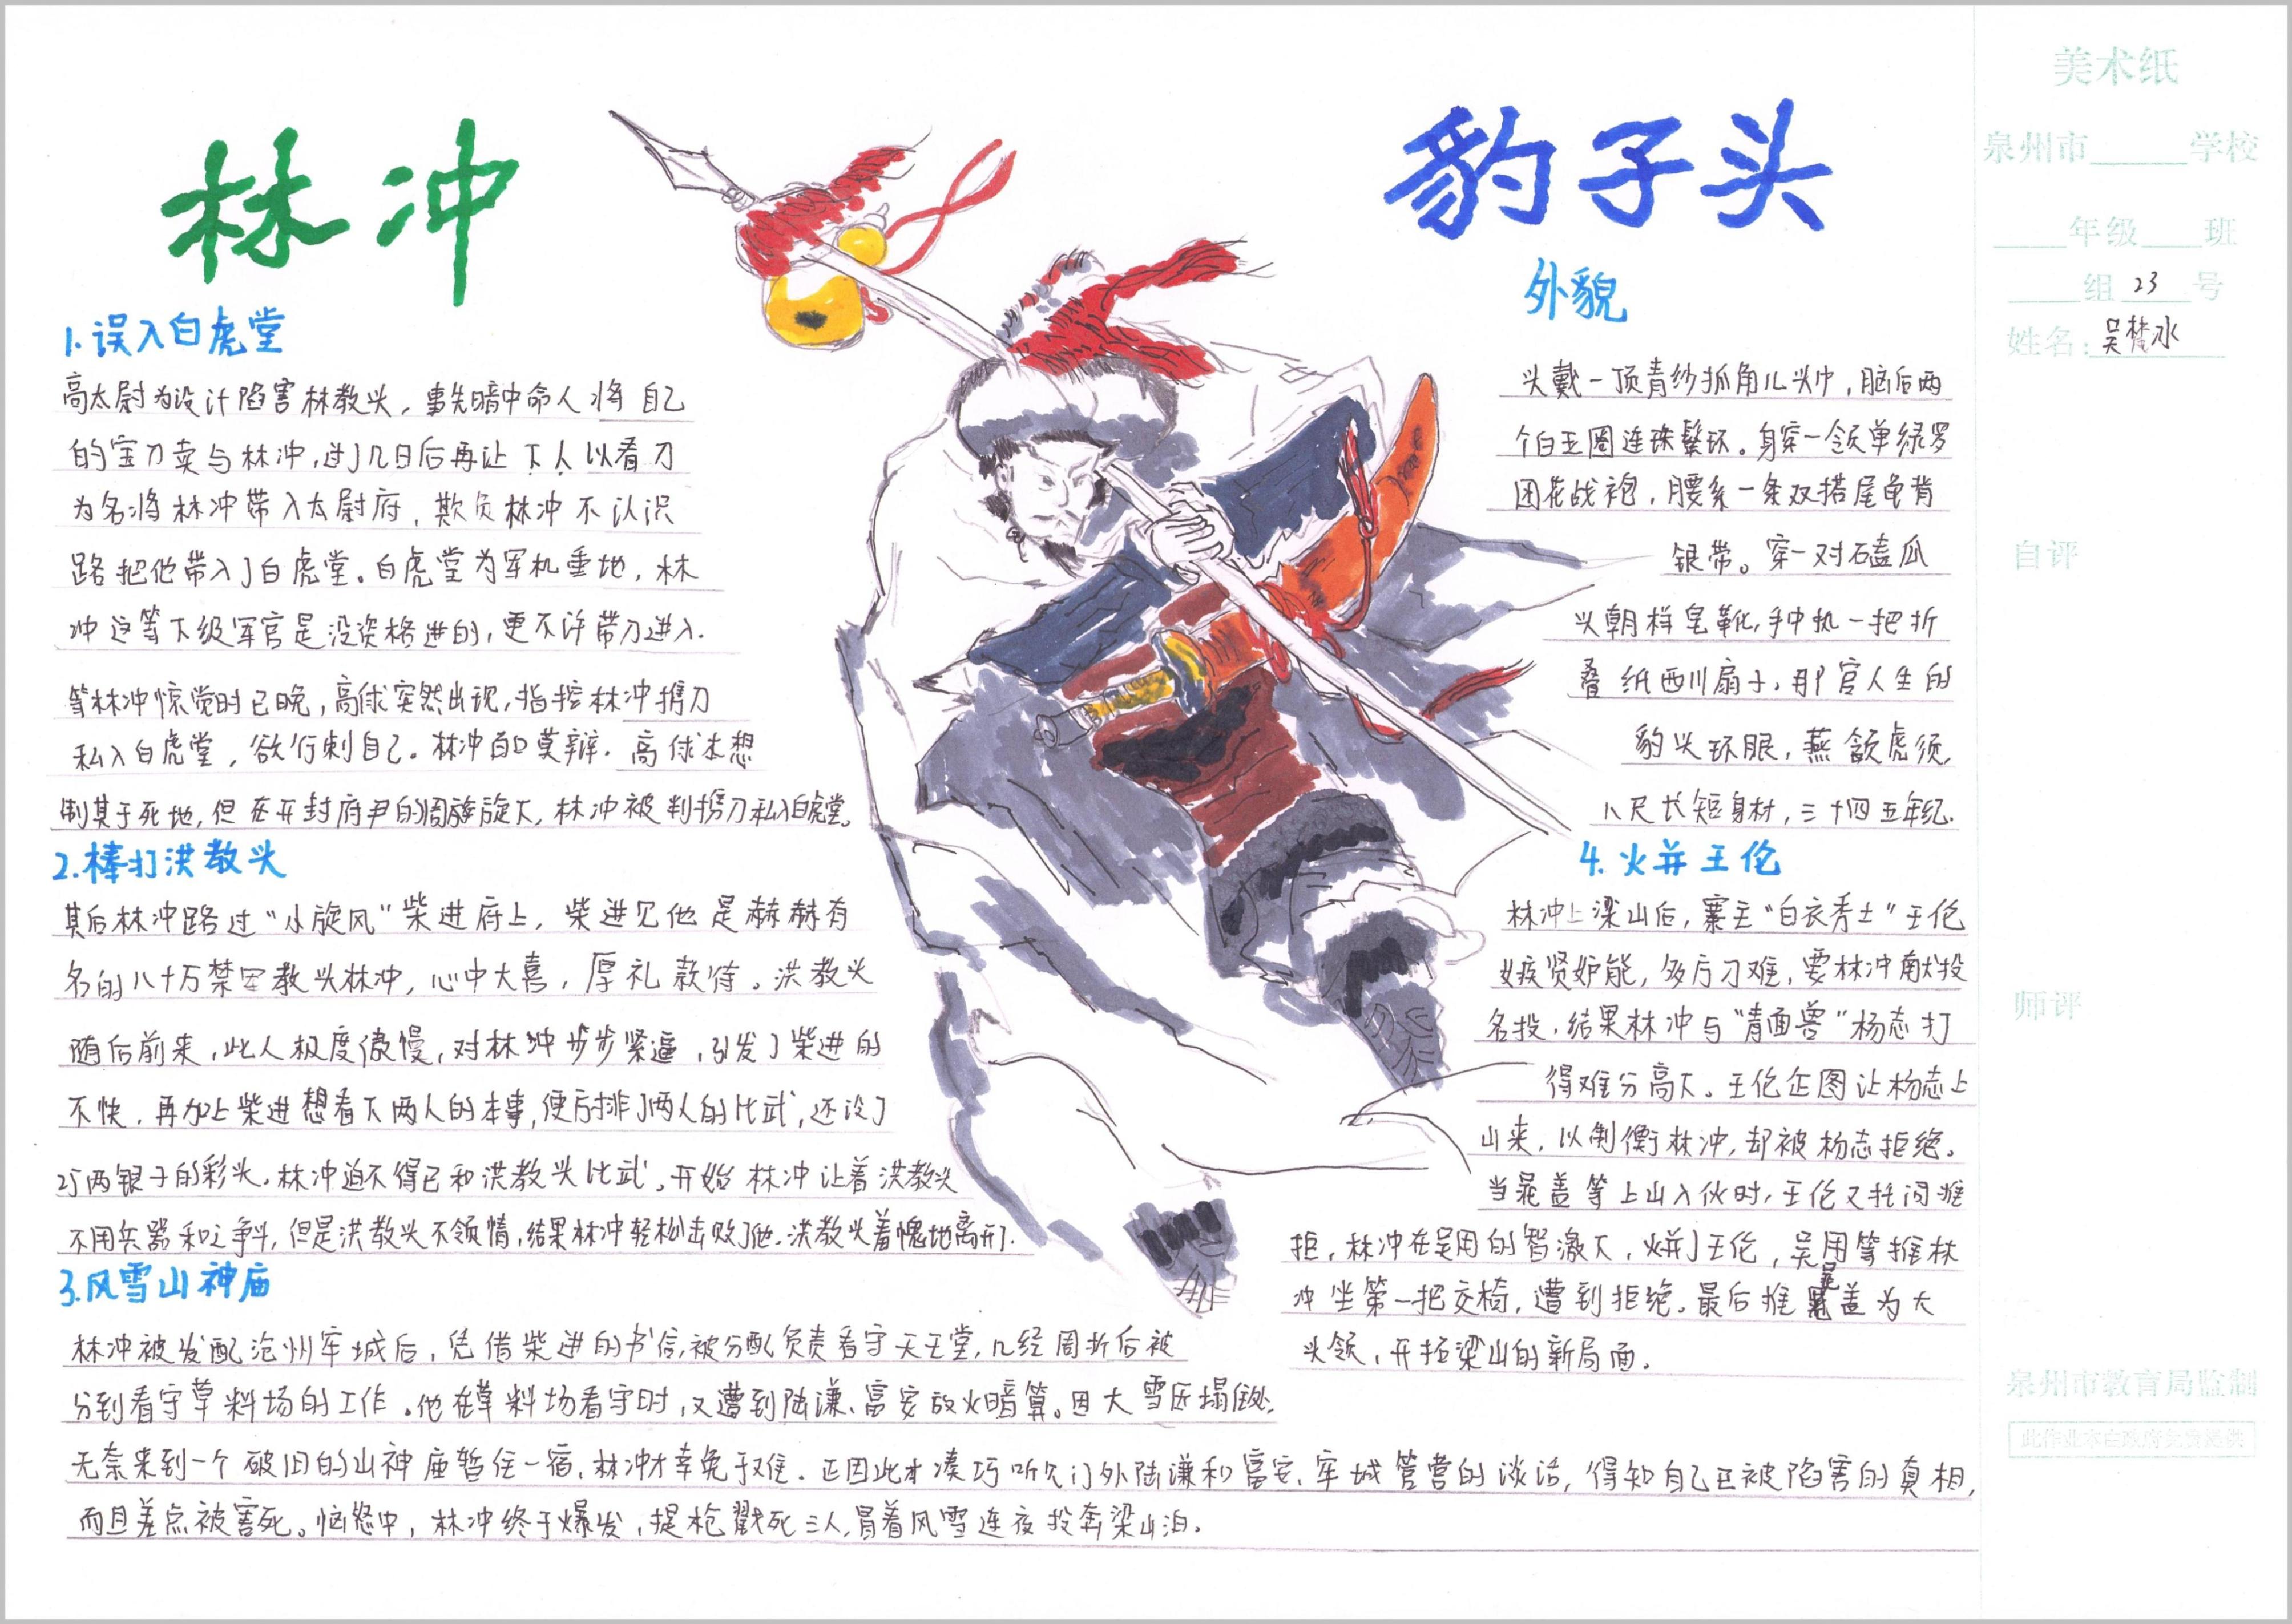 林冲
1.误入白虎堂
高太尉为设计陷害林教头，事先暗中命人将自己
的宝刀卖与林冲，过了几日后再让下人以看刀
为名将林冲带入太尉府，欺负林冲不认识
路把他带入了白虎堂。白虎堂为军机重地，林
冲这等下级军官是没资格进的，更不许带刀进入.
等林冲惊觉时已晚，高俅突然出现，指控林冲携刀
私入白虎堂，欲行刺自己。林冲百口莫辩.高俅本想
制其于死地，但在开封府尹的周旋下，林冲被判携刀私入白虎堂。
2.棒打洪教头
其后林冲路过“小旋风”柴进府上，柴进见他是赫赫有
名的八十万禁军教头林冲，心中大喜，厚礼款待。洪教头
随后前来，此人极度傲慢，对林冲步步紧逼，引发了柴进的
不快，再加上柴进想看下两人的本事，便安排了两人的比武，还设了
25两银子的彩头.林冲迫不得已和洪教头比武。开始林冲让着洪教头
不用兵器和之争斗，但是洪教头不领情，结果林冲轻松击败了他.洪教头羞愧地离开了.
3.风雪山神庙
林冲被发配沧州牢城后，凭借柴进的书信，被分配负责看守天王堂，几经周折后被
分到看守草料场的工作。他在草料场看守时，又遭到陆谦、富安放火暗算。因大雪压塌住处，
无奈来到一个破旧的山神庙暂住一宿，林冲才幸免于难.正因此才凑巧听久门外陆谦和富安、牢城管营的谈话，得知自己已被陷害的真相，
而且差点被害死。恼怒中，林冲终于爆发，提枪戳死三人，冒着风雪连夜投奔梁山泊。
豹子头
外貌
头戴一顶青纱抓角儿头巾，脑后两
个白玉圈连珠鬓环。身穿一领单绿罗
团花战袍，腰系一条双搭尾龟背
银带。穿一对磕瓜
头朝样皂靴，手中执一把折
叠纸西川扇子。那官人生的
豹头环眼，燕颔虎须，
八尺长短身材，三十四五年纪.
4.火并王伦
林冲上梁山后，寨主“白衣秀士”王伦
嫉贤妒能，多方刁难，要林冲献投
名投，结果林冲与“青面兽”杨志打
得难分高下。王伦企图让杨志上
山来，以制衡林冲，却被杨志拒绝。
当晁盖等上山入伙时，王伦又托词推
拒，林冲在吴用的智激下，火并了王伦，吴用等推林
冲坐第一把交椅，遭到拒绝。最后推晁盖为大
头领，开拓梁山的新局面。
美术纸
泉州市______学校
____年级___班
____组 23 号
姓名：吴梦冰
自评
师评
泉州市教育局监制
此作业本由政府免费提供